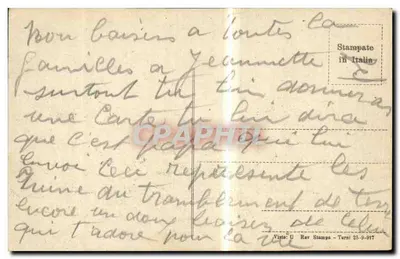 mon baisers a toutes la
familles a Jeannette
surtout tu lui donneras
une Carte tu lui dira
que c'est papa qui lui
Envoi Ceci représente les
Ruine du tramblement de terre
encore un doux baiser de celui
qui t'adore pour la vie
Stampate
in Italia
CPARAMA
Rev Stampa - Terni 21-9-917